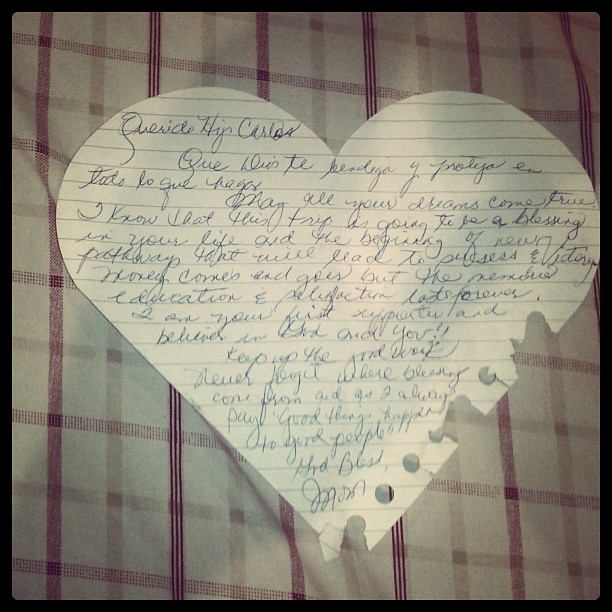 Querido Hijo Carlos
Que Dios te bendiga y proteja en
todo lo que hagas
May all your dreams come true.
I know that this trip is going to be a blessing
in your life and the beginning of new
pathways that will lead to success & victory
Money comes and goes but the memories
education & satisfaction lasts forever.
I am your first supporter and
believer in God and you!!
Keep up the good work
Never forget where blessing
come from and as I always
say "Good things happen
to good people"
God Bless,
Mom